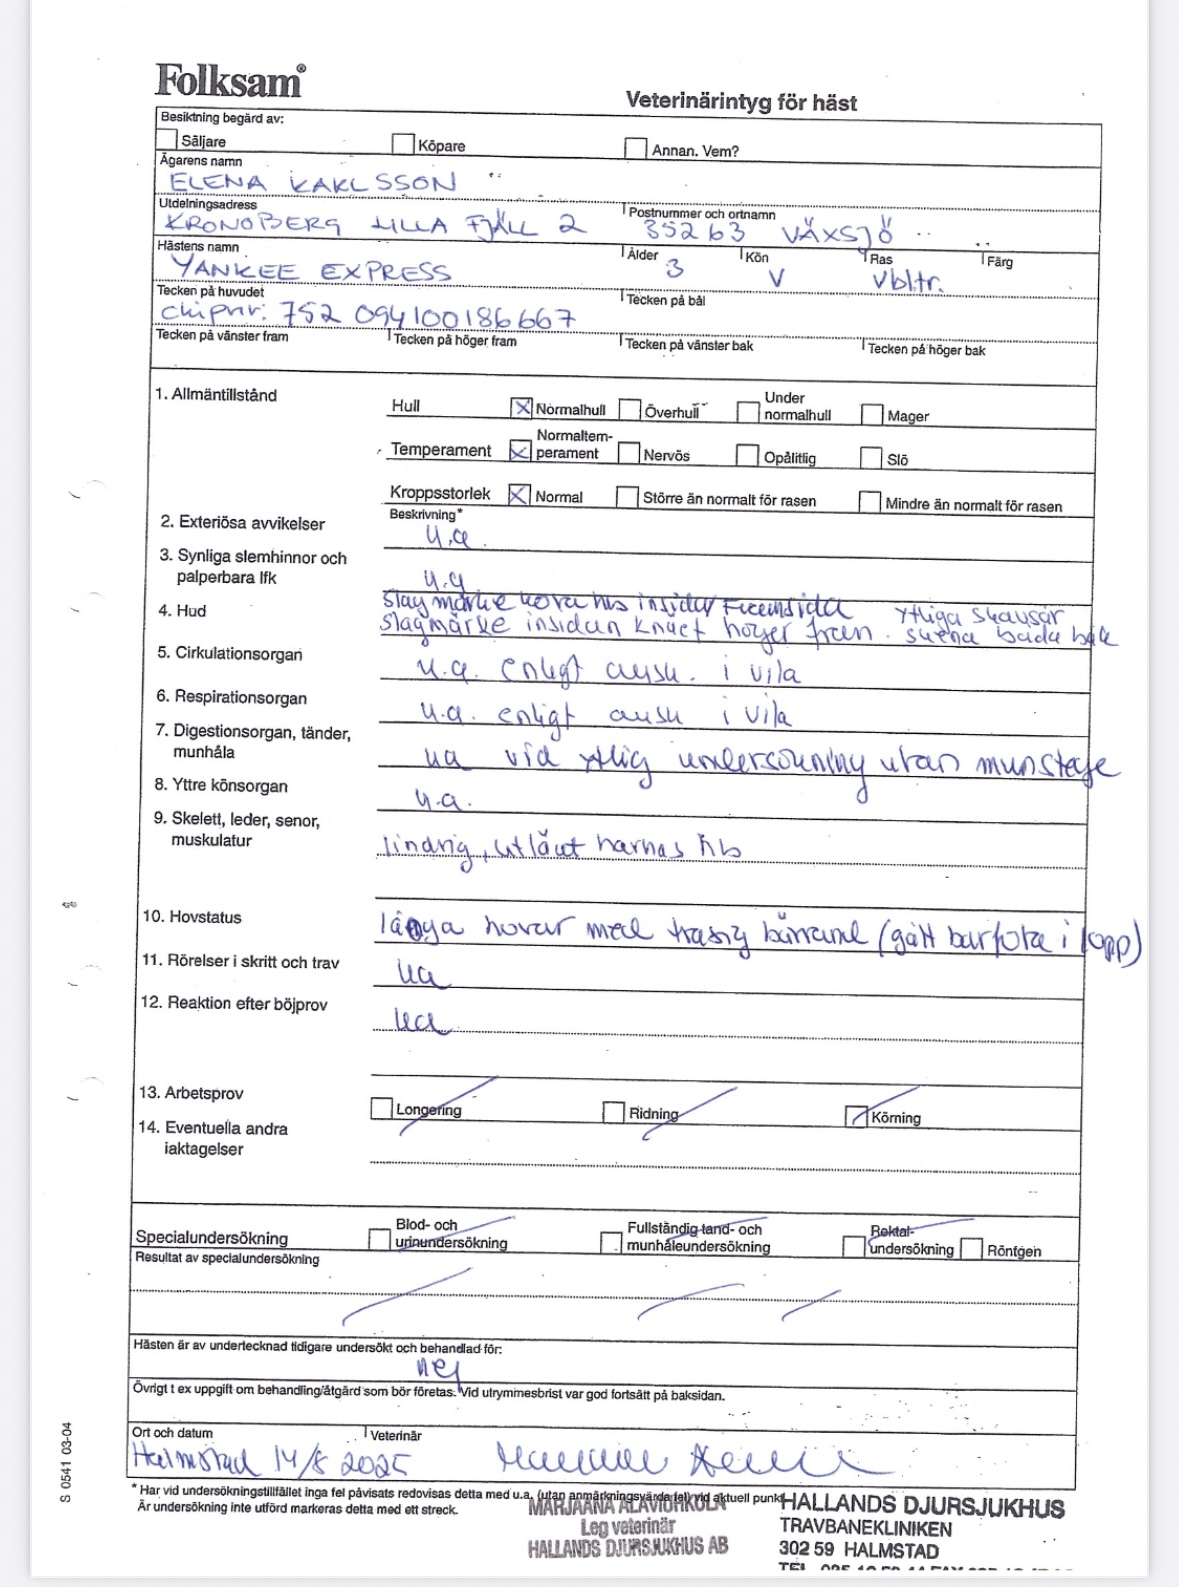 Folksam®
Veterinärintyg för häst
Besiktning begärd av:
Säljare Köpare Annan. Vem?
Ägarens namn
ELENA KARLSSON
Utdelningsadress Postnummer och ortnamn
KRONOBERG LILLA FJÄLL 2 35263 VÄXSJÖ
Hästens namn Ålder Kön Ras Färg
YANKEE EXPRESS 3 V Vbltr.
Tecken på huvudet Tecken på bål
chipnr: 752 094100186667
Tecken på vänster fram Tecken på höger fram Tecken på vänster bak Tecken på höger bak
1. Allmäntillstånd
Hull Normalhull Överhull Under normalhull Mager
Temperament Normaltem-perament Nervös Opålitlig Slö
Kroppsstorlek Normal Större än normalt för rasen Mindre än normalt för rasen
Beskrivning*
2. Exteriösa avvikelser u.a.
3. Synliga slemhinnor och
palperbara lfk u.a
4. Hud slagmärke insida ytliga skavsår
slagmärke insidan knäet höger fram. båda bak
5. Cirkulationsorgan u.a. enligt ausk. i vila
6. Respirationsorgan u.a. enligt ausk i vila
7. Digestionsorgan, tänder,
munhåla ua vid ytlig undersökning utan munstege
8. Yttre könsorgan u.a.
9. Skelett, leder, senor,
muskulatur lindrig, utläkt
10. Hovstatus långa hovar med trasig bärrand (gått barfota i lopp)
11. Rörelser i skritt och trav ua
12. Reaktion efter böjprov ua
13. Arbetsprov Longering Ridning Körning
14. Eventuella andra
iaktagelser
Specialundersökning Blod- och urinundersökning Fullständig tand- och munhåleundersökning Rektal-undersökning Röntgen
Resultat av specialundersökning
Hästen är av undertecknad tidigare undersökt och behandlad för:
nej
Övrigt t ex uppgift om behandling/åtgärd som bör företas. Vid utrymmesbrist var god fortsätt på baksidan.
Ort och datum Veterinär
Halmstad 14/8 2025
* Har vid undersökningstillfället inga fel påvisats redovisas detta med u.a. (utan anmärkningsvärda fel) vid aktuell punkt
Är undersökning inte utförd markeras detta med ett streck.
MARJAANA ALAVIUHKOLA
Leg veterinär
HALLANDS DJURSJUKHUS AB
HALLANDS DJURSJUKHUS
TRAVBANEKLINIKEN
302 59 HALMSTAD
S 0541 03-04